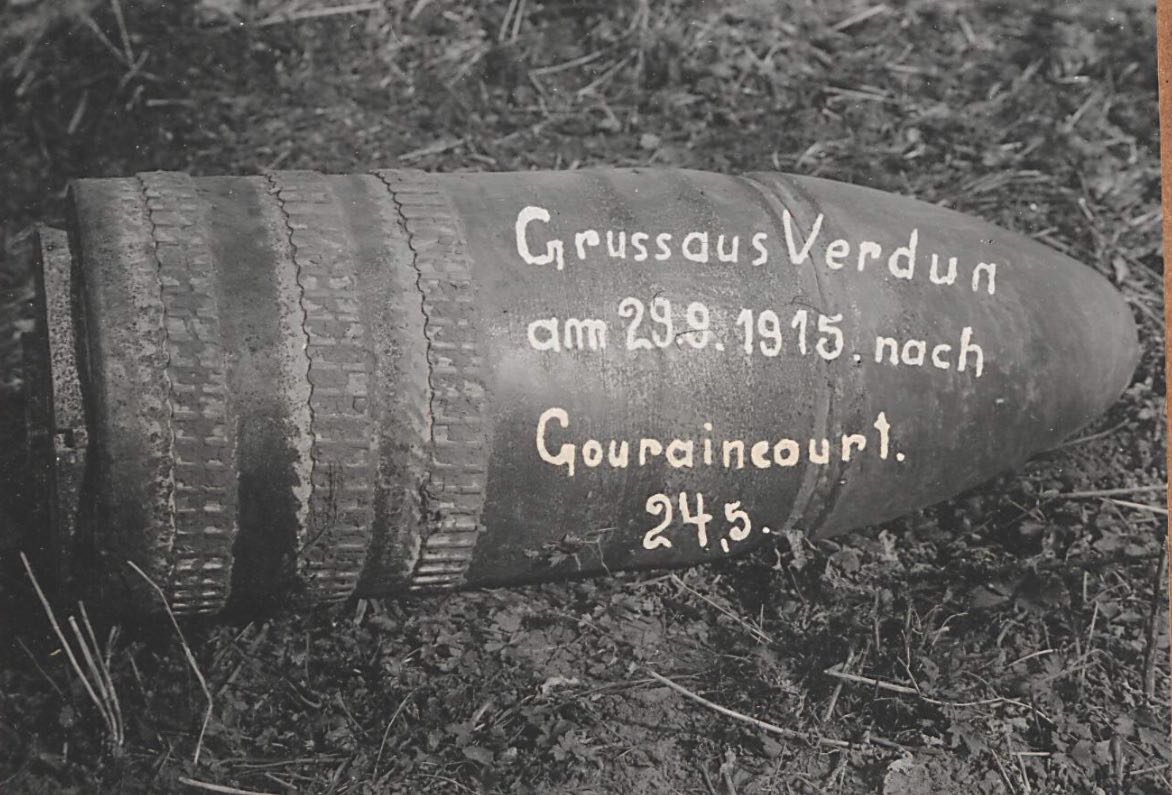 Gruss aus Verdun
am 29.9.1915. nach
Gouraincourt.
24,5.